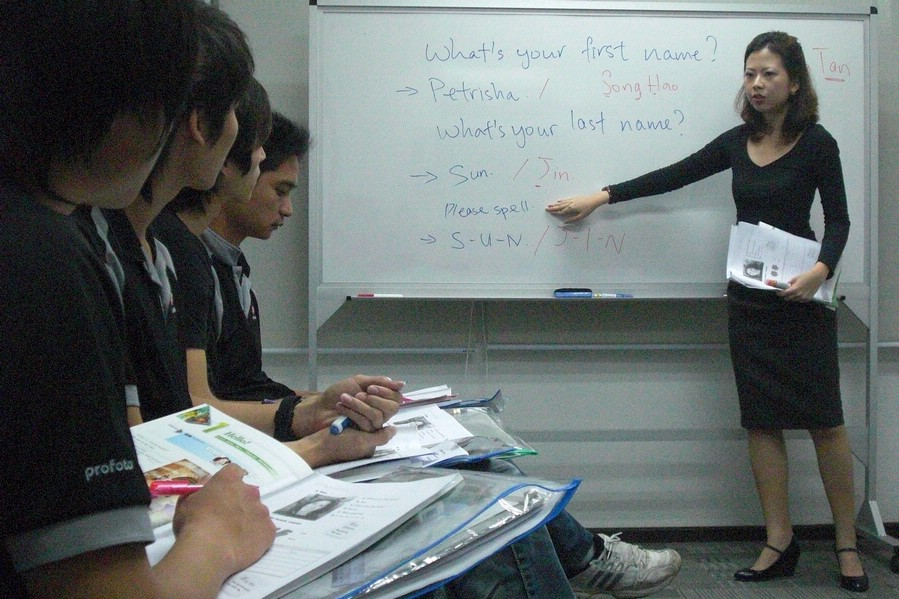 What's your first name?
→ Petrisha. / Song Hao
Tan
What's your last name?
→ Sun. / Jin.
Please spell.
→ S-U-N. / J-I-N
1 Hello!
profoto